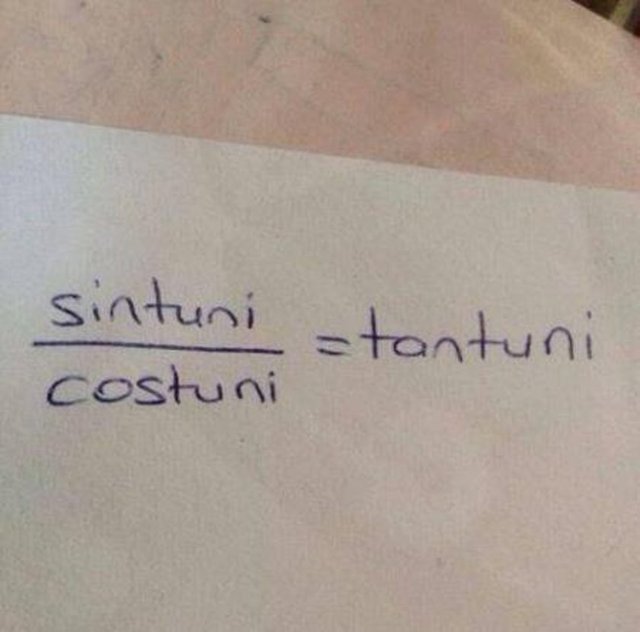 sintuni
costuni
=tantuni